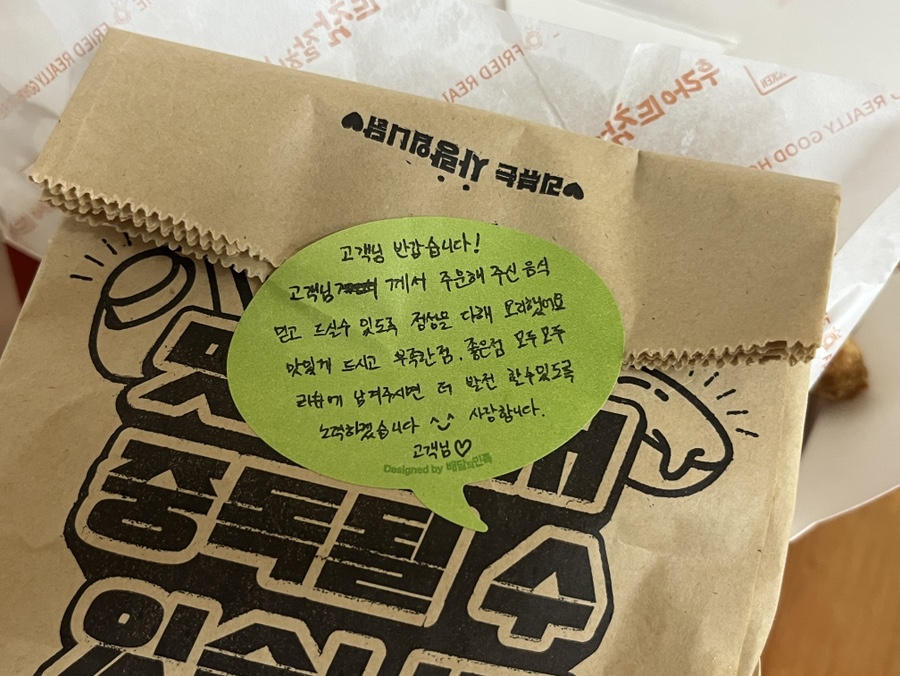 FRIED REALLY GOOD
FRIED REA
REALLY GOOD HO
♥리뷰는 사랑입니다♥
고객님 반갑습니다!
고객님 께서 주문해 주신 음식
믿고 드실수 있도록 정성을 다해 요리했어요
맛있게 드시고 부족한점, 좋은점 모두모두
리뷰에 남겨주시면 더 발전 할수있도록
노력하겠습니다 ^^ 사랑합니다.
고객님♡
Designed by 배달의민족
중독될 수